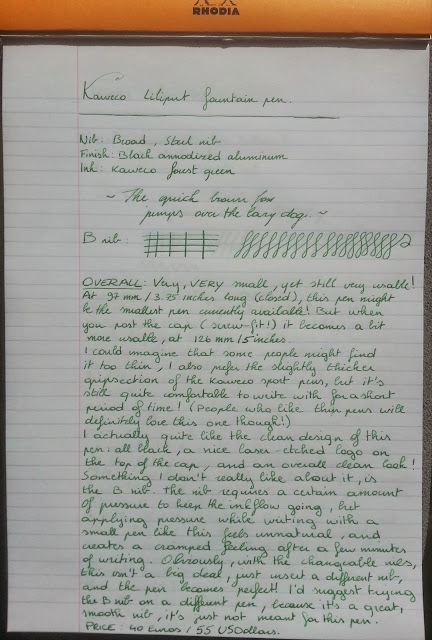 RHODIA
Kaweco Liliput fountain pen.
Nib: Broad, Steel nib
Finish: Black annodized aluminum
Ink: Kaweco forest green
~ The quick brown fox
jumps over the lazy dog. ~
B nib:
OVERALL: Very, VERY small, yet still very usable!
At 97 mm / 3.75 inches long (closed), this pen might
be the smallest pen currently available! But when
you post the cap (screw-fit!) it becomes a bit
more usable, at 126 mm / 5 inches.
I could imagine that some people might find
it too thin, I also prefer the slightly thicker
gripsection of the Kaweco sport pens, but it's
still quite comfortable to write with for a short
period of time! (People who like thin pens will
definitely love this one though!)
I actually quite like the clean design of this
pen: all black, a nice laser-etched logo on
the top of the cap, and an overall clean look!
Something I don't really like about it, is
the B nib. The nib requires a certain amount
of pressure to keep the inkflow going, but
applying pressure while writing with a
small pen like this feels unnatural, and
creates a cramped feeling after a few minutes
of writing. Obviously, with the changeable nibs,
this isn't a big deal, just insert a different nib,
and the pen becomes perfect! I'd suggest trying
the B nib on a different pen, because it's a great,
smooth nib, it's just not meant for this pen.
PRICE: 40 Euros / 55 USDollars.